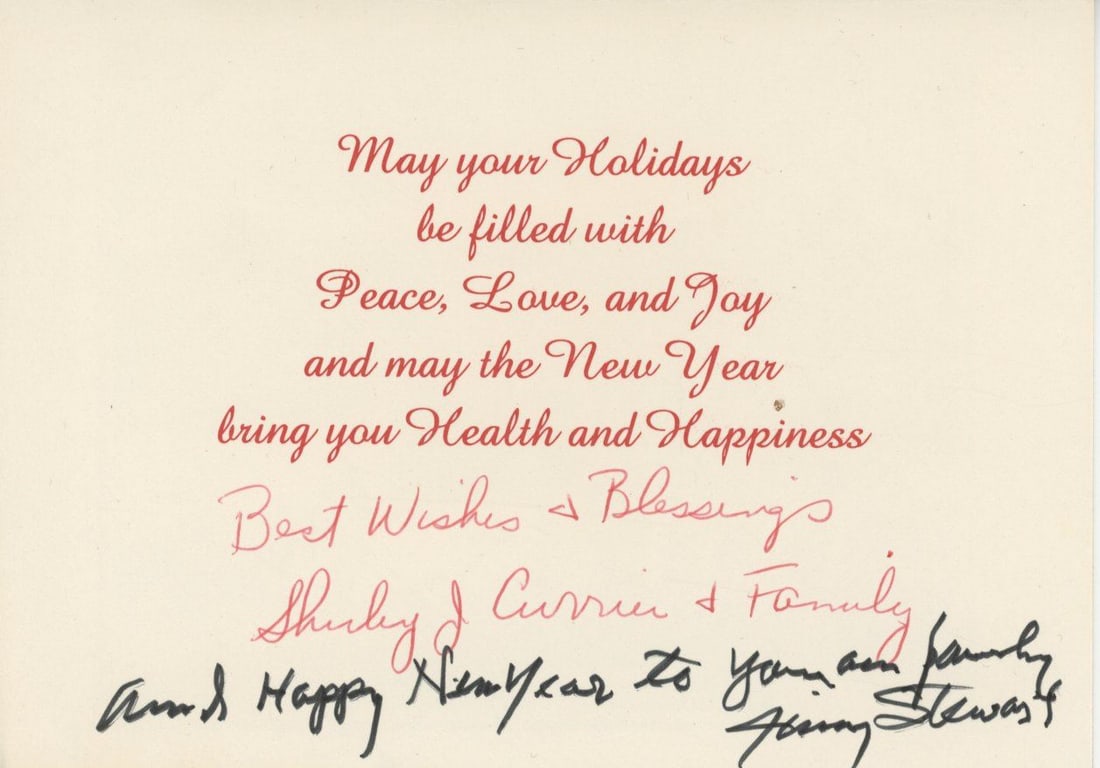 May your Holidays
be filled with
Peace, Love, and Joy
and may the New Year
bring you Health and Happiness
Best Wishes & Blessings
Shirley J Currier & Family
and Happy New Year to you family
Jimmy Stewart